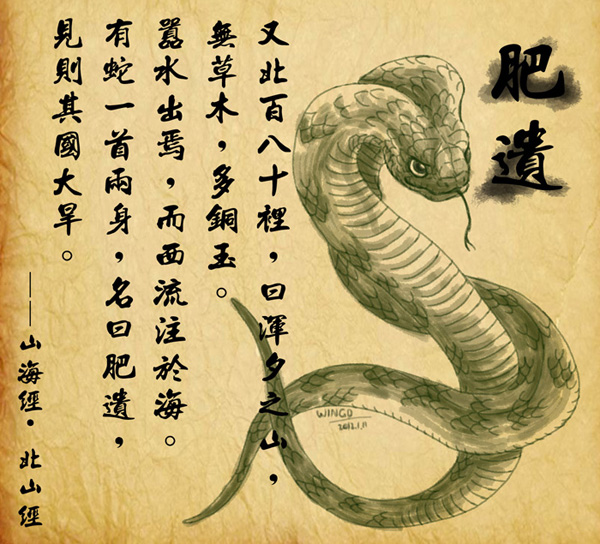 肥遺
又北百八十裡，曰渾夕之山，
無草木，多銅玉。
囂水出焉，而西流注於海。
有蛇一首兩身，名曰肥遺，
見則其國大旱。
——山海經·北山經
WINGD
2012.1.11